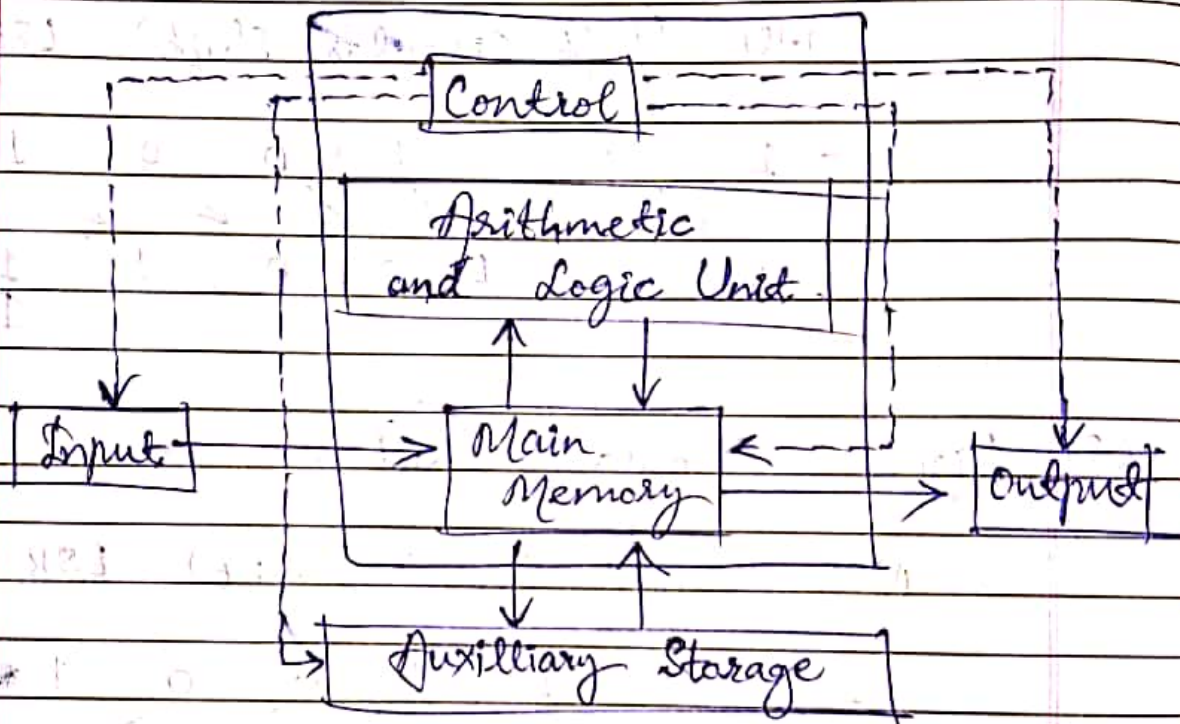 Control
Arithmetic
and Logic Unit
Input
Main
Memory
Output
Auxilliary Storage